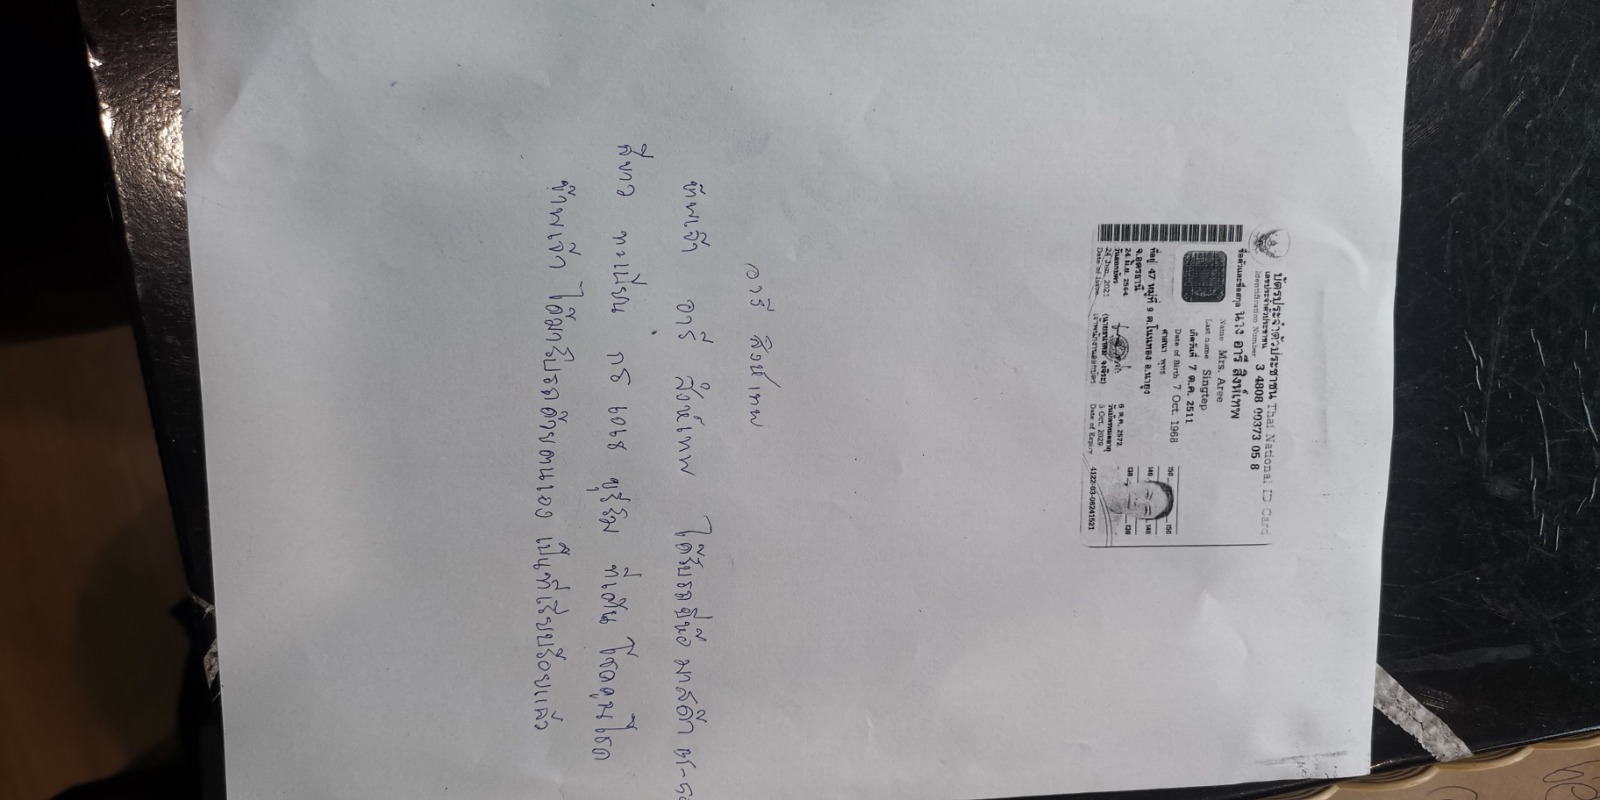 บัตรประจำตัวประชาชน Thai National ID Card
เลขประจำตัวประชาชน
Identification Number 3 4808 00373 05 8
ชื่อตัวและชื่อสกุล นาง อารี สิงห์เทพ
Name Mrs. Aree
Last name Singtep
เกิดวันที่ 7 ต.ค. 2511
Date of Birth 7 Oct. 1968
ศาสนา พุทธ
ที่อยู่ 47 หมู่ที่ 9 ต.โนนทอง อ.นายูง
จ.อุดรธานี
24 มิ.ย. 2564
วันออกบัตร
24 Jun. 2021
Date of Issue
เจ้าพนักงานออกบัตร
6 ต.ค. 2572
วันบัตรหมดอายุ
5 Oct. 2029
Date of Expiry
4122-03-08241521
อารี สิงห์เทพ
ข้าพเจ้า อารี สิงห์เทพ ได้รับรถยี่ห้อ มาสด้า
สีขาว ทะเบียน กธ บุรีรัมย์
ข้าพเจ้า ได้มารับรถด้วยตนเอง เป็นที่เรียบร้อยแล้ว